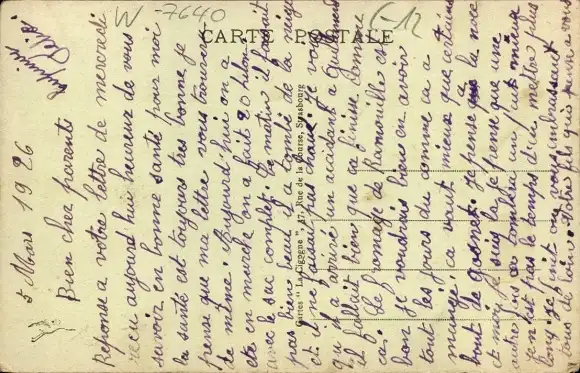 W-7640
C-12
CARTE POSTALE
Cartes "La Cigogne" 47, Rue de la Course, Strasbourg
5 Mars 1926
Bien cher parents
Reponse a votre lettre de mercredi
recu aujourd'hui heureux de vous
savoir en bonne santé pour moi
la santé est toujours tres bonne je
pense que ma lettre vous trouvera
de même. Aujourd'hui on a
ete en marche on a fait 20 kilom
avec le sac complet. Le matin il faisait
pas bien beau il a tombé de la neige
et il ne faisait pas chaud. Je vous
qu'il a arrivé un accidant a
il fallait bien que sa finisse comme
ca. Le fromage de Ramonville est
bon je voudrais bien en avoir
tout les jours du comme ca a
mangé ca vaut mieux que certains
bout de gogoret. Je pense a la noce
et moi je suis la je pense que une
autre fois ca tombera un peut mieux
J'en est pas le temps d'en mettre plus
long je finit en vous embrassant
tous de loin. Votre fils qui pense a vous